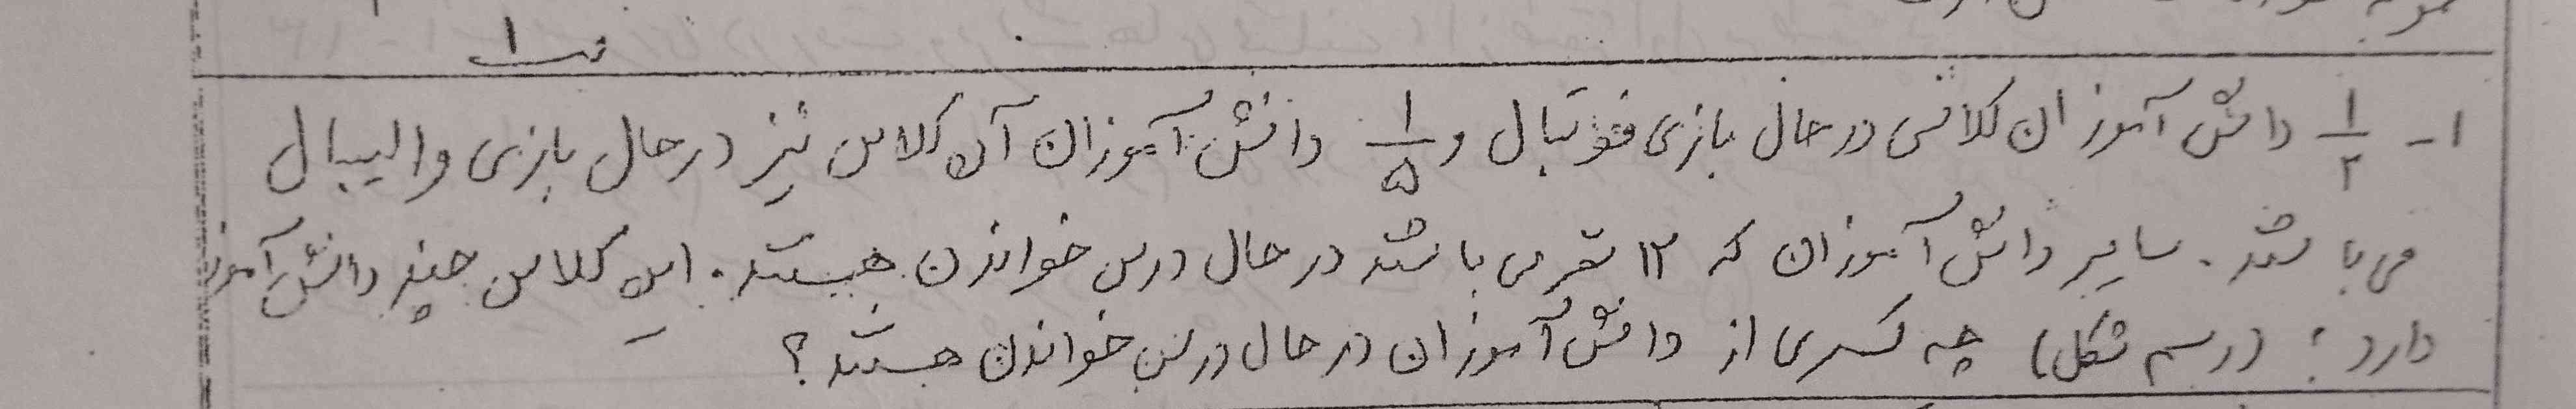 ۱- ۱/۲ دانش آموزان کلاسی در حال بازی فوتبال و ۱/۵ دانش آموزان آن کلاس نیز در حال بازی والیبال
می باشند. سایر دانش آموزان که ۱۲ نفر می باشند در حال درس خواندن هستند. این کلاس چند دانش آموز
دارد؟ (رسم شکل) چه کسری از دانش آموزان در حال درس خواندن هستند؟